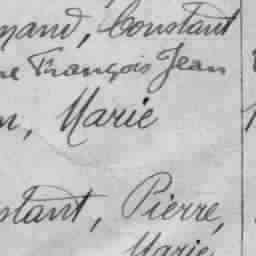 mand, Constant
ne François Jean
n, Marie
stant, Pierre,
Marie